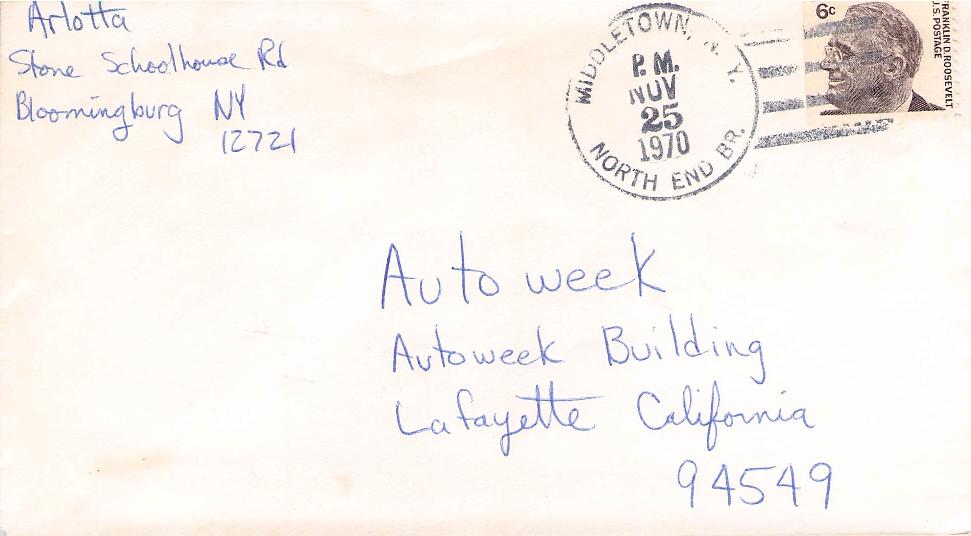 Arlotta
Stone Schoolhouse Rd
Bloomingburg NY
12721
MIDDLETOWN, N. Y.
P.M.
NOV
25
1970
NORTH END BR.
6c
FRANKLIN D. ROOSEVELT
U.S. POSTAGE
Autoweek
Autoweek Building
Lafayette California
94549